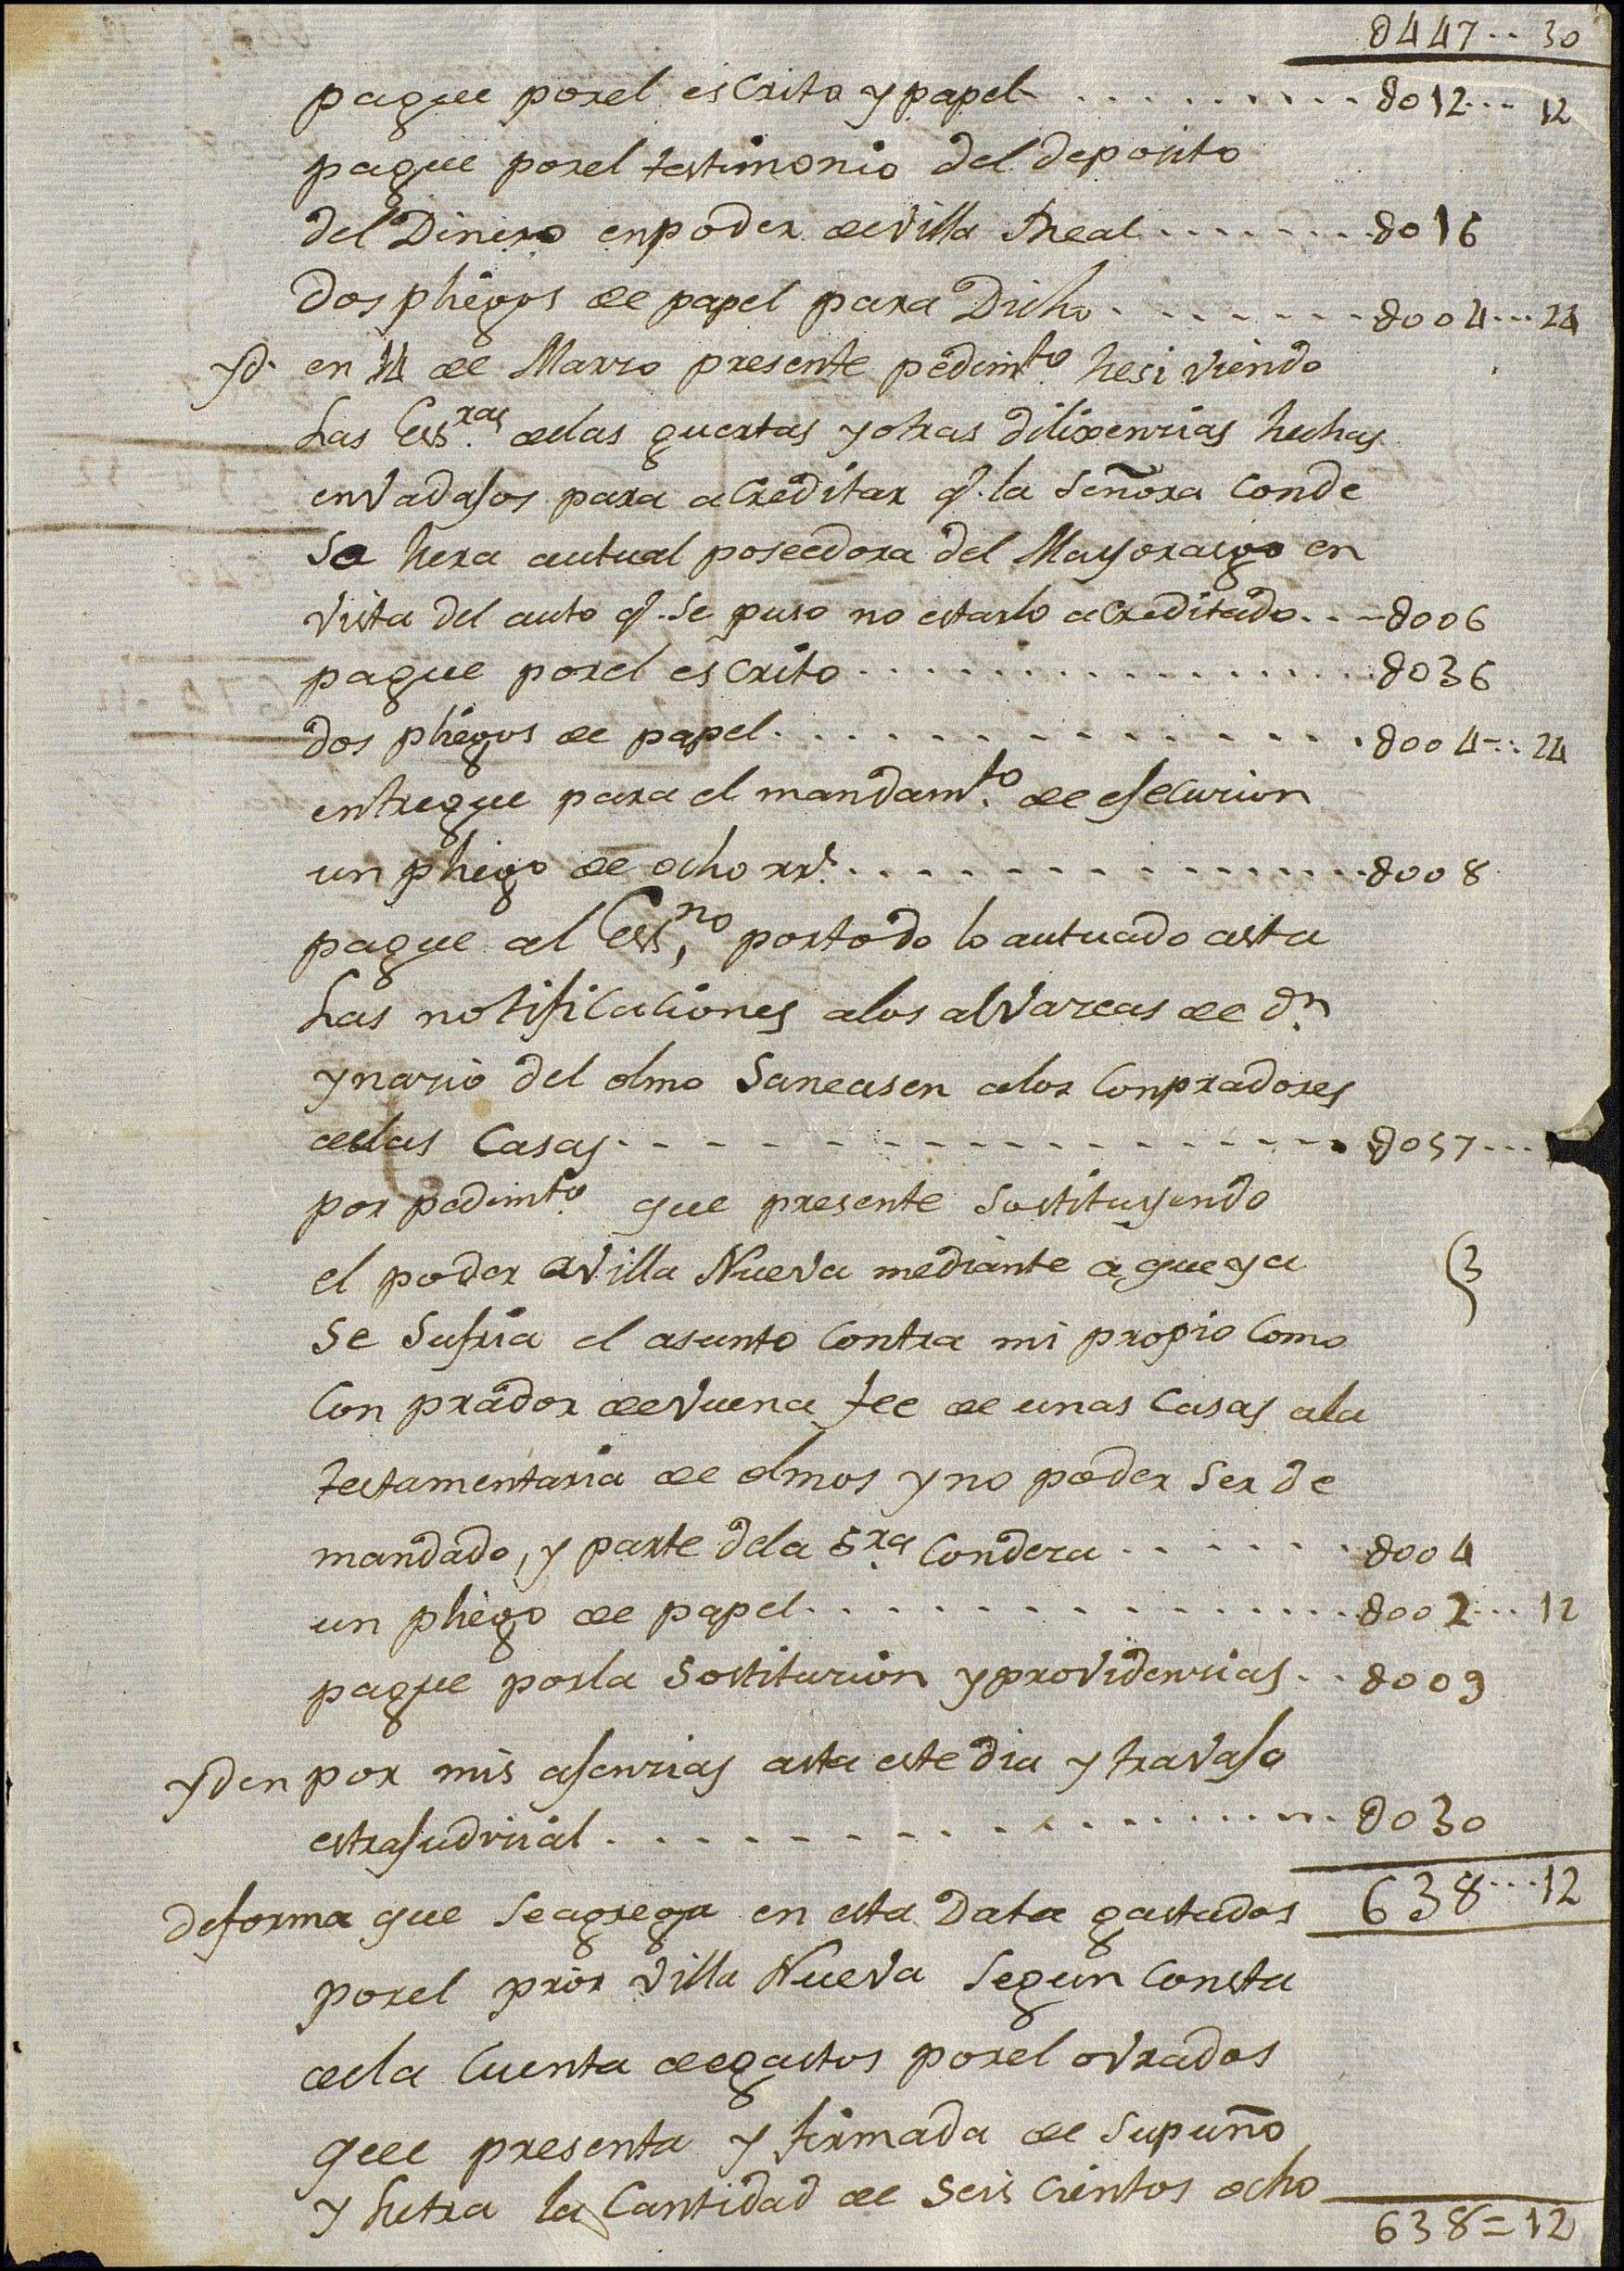 0447.. 30
pague porel esCrito y papel .......... 8012... 12
pague porel testimonio del deposito
del Dinero enpoder devilla Rreal ........ 8016
dos pliegos de papel para Dicho ........ 8004... 24
yd. en 14 de Marzo presente pedimto. hesiviendo
Las Essras. delas guertas yotras dilixencias hechas
enVadajos para aCreditar q. la Señora Conde
Sa hera autual poseedora del Mayorazgo en
Vista del auto q. Se puso no estarlo aCreditado... 8006
pague porel esCrito .............. 8036
dos pliegos de papel .............. 8004... 24
entregue para el mandamto. de eseCucion
un pliego de ocho rrs. .............. 8008
pague al Essno. portodo lo autuado asta
Las notifiCaCiones alos alVazeas de dn.
ynazio del olmo Saneasen alos Conpradores
delas Casas .................. 8057...
por pedimto. que presente Sostituyendo
el poder aVilla Nueva mediante a que ya
Se Sufria el asunto Contra mi propio Como
Con prador deVuena fee de unas Casas ala
testamentaria de olmos y no poder Ser de
mandado, y parte dela Sra. Condeza ...... 8004
un pliego de papel .............. 8002... 12
pague porla Sostituzion yprovidenzias .. 8009
yden por mis asenzias asta este dia y travaso
estrasudizial .............. 8030
638... 12
deforma que Seagrega en esta Data gastados
porel pror Villa Nueva Segun Consta
dela Cuenta degastos porel oVrados
que presenta y firmada de Supuño
y hetra la Cantidad de Seis Cientos ocho
638=12